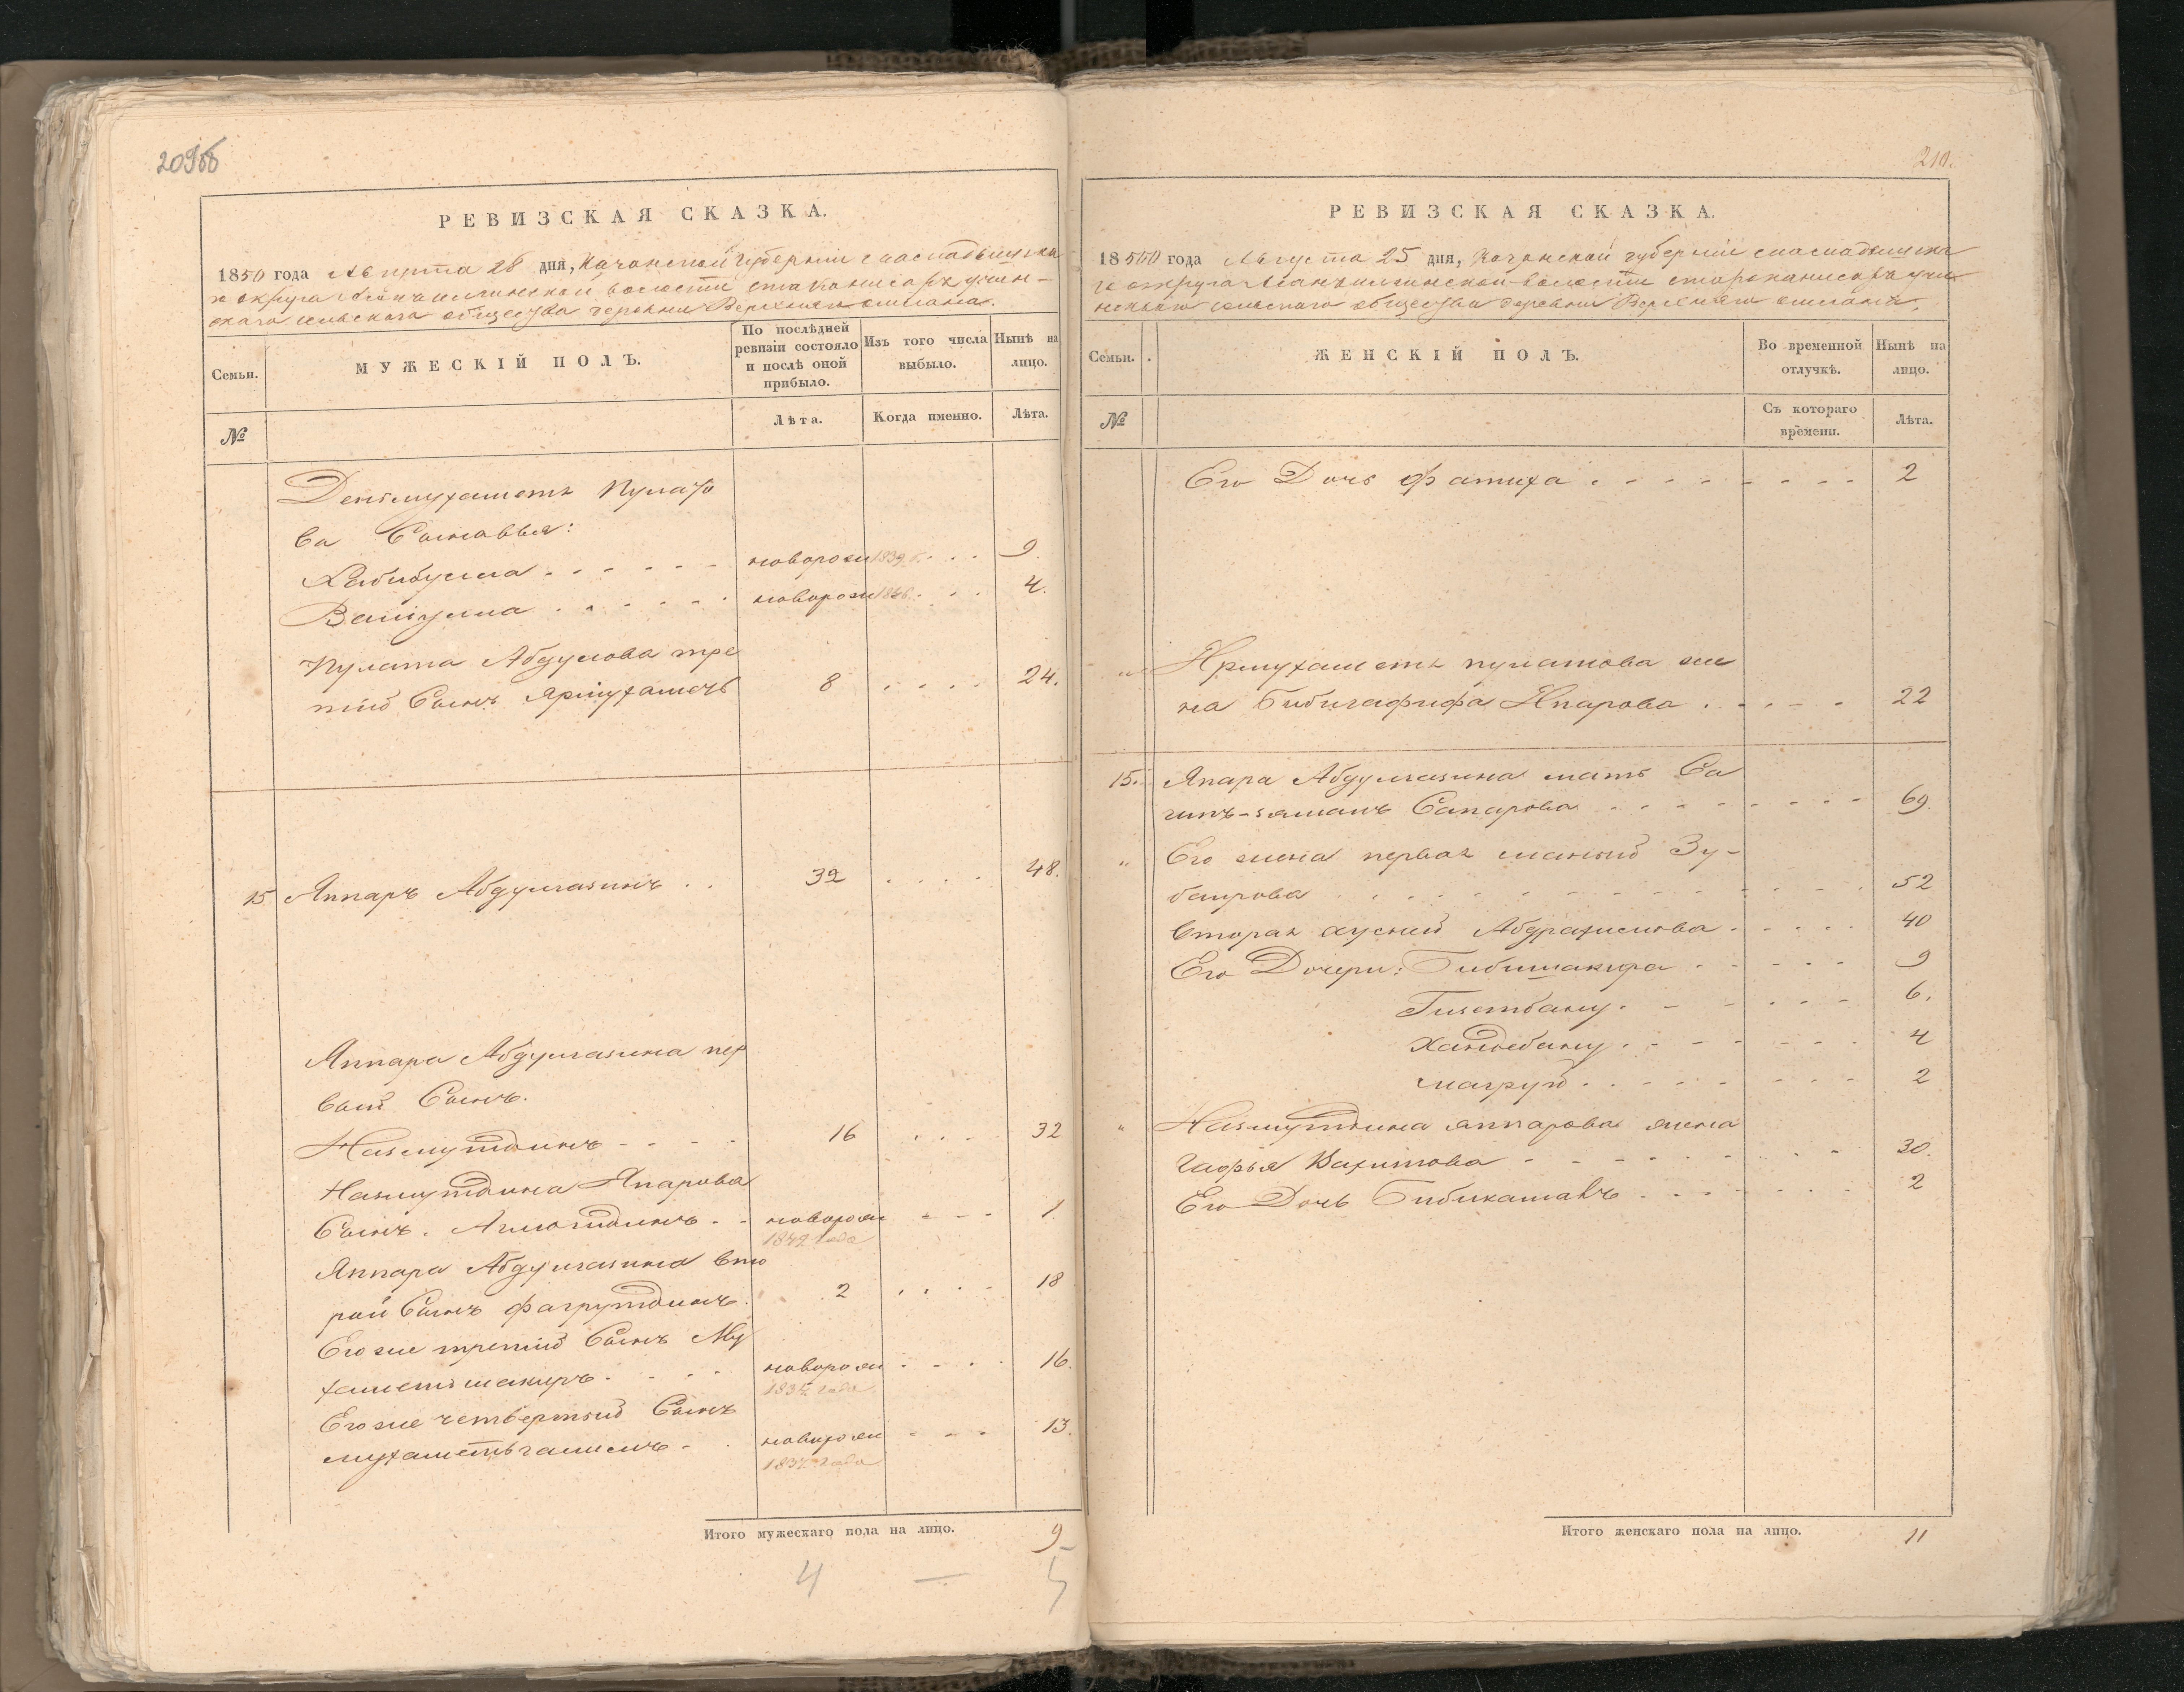 209об
РЕВИЗСКАЯ СКАЗКА.
1850 года Августа 28 дня, Казанской Губернии спаспадъинска
го округа волости
скаго сельскаго общества деревни Верхняго
Семьи.
МУЖЕСКІЙ ПОЛЪ.
По послѣдней ревизіи состояло и послѣ оной прибыло.
Изъ того числа выбыло.
Нынѣ на лицо.
№
Лѣта.
Когда именно.
Лѣта.
Денмухаметъ Пулато
ва Сыновья:
Хабибулла новорож 1839 9.
Валиулла новорож 1846 4.
Пулата Абдулова тре
тій Сынъ Ярмухаметъ 8 24.
15 Яппаръ Абдулгазинъ 32 48.
Яппара Абдулгазина пер
вый Сынъ.
Назмутдинъ 16 32
Назмутдина Япарова
Сынъ. новорож 1.
1849 года
Яппара Абдулгазина вто
рой Сынъ Фагрутдинъ. 2 18
Его же третій Сынъ Му
хаметшакиръ. новорож 16.
1834 года
Его же четвертый Сынъ
мухаметьгалимъ новорож 13.
1837 года
Итого мужескаго пола на лицо. 9
4 — 5
210.
РЕВИЗСКАЯ СКАЗКА.
1850 года Августа 25 дня, Казанской губерніи спаспадъинска
го округа волости
сельскаго общества деревни Верхняго
Семьи.
ЖЕНСКІЙ ПОЛЪ.
Во временной отлучкѣ.
Нынѣ на лицо.
№
Съ котораго времени.
Лѣта.
Его Дочь Фатиха 2
„ Ярмухаметъ пулатова же
на Бибигафифа Япарова 22
15. Япара Абдулгазина мать Са
гипъ-замалъ Сапарова 69.
„ Его жена первая Зу-
баирова 52
вторая хусний Абдрахимова 40
Его Дочери: Бибишакира 9
Гизетбану 6.
Хандебану 4
магруй 2
„ Назмутдина аппарова жена
гафья Вахитова 30.
Его Дочь Бибикамалъ 2
Итого женскаго пола на лицо. 11